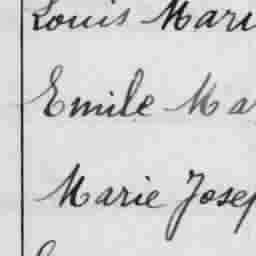 Louis Mari
Emile Ma
Marie Josep